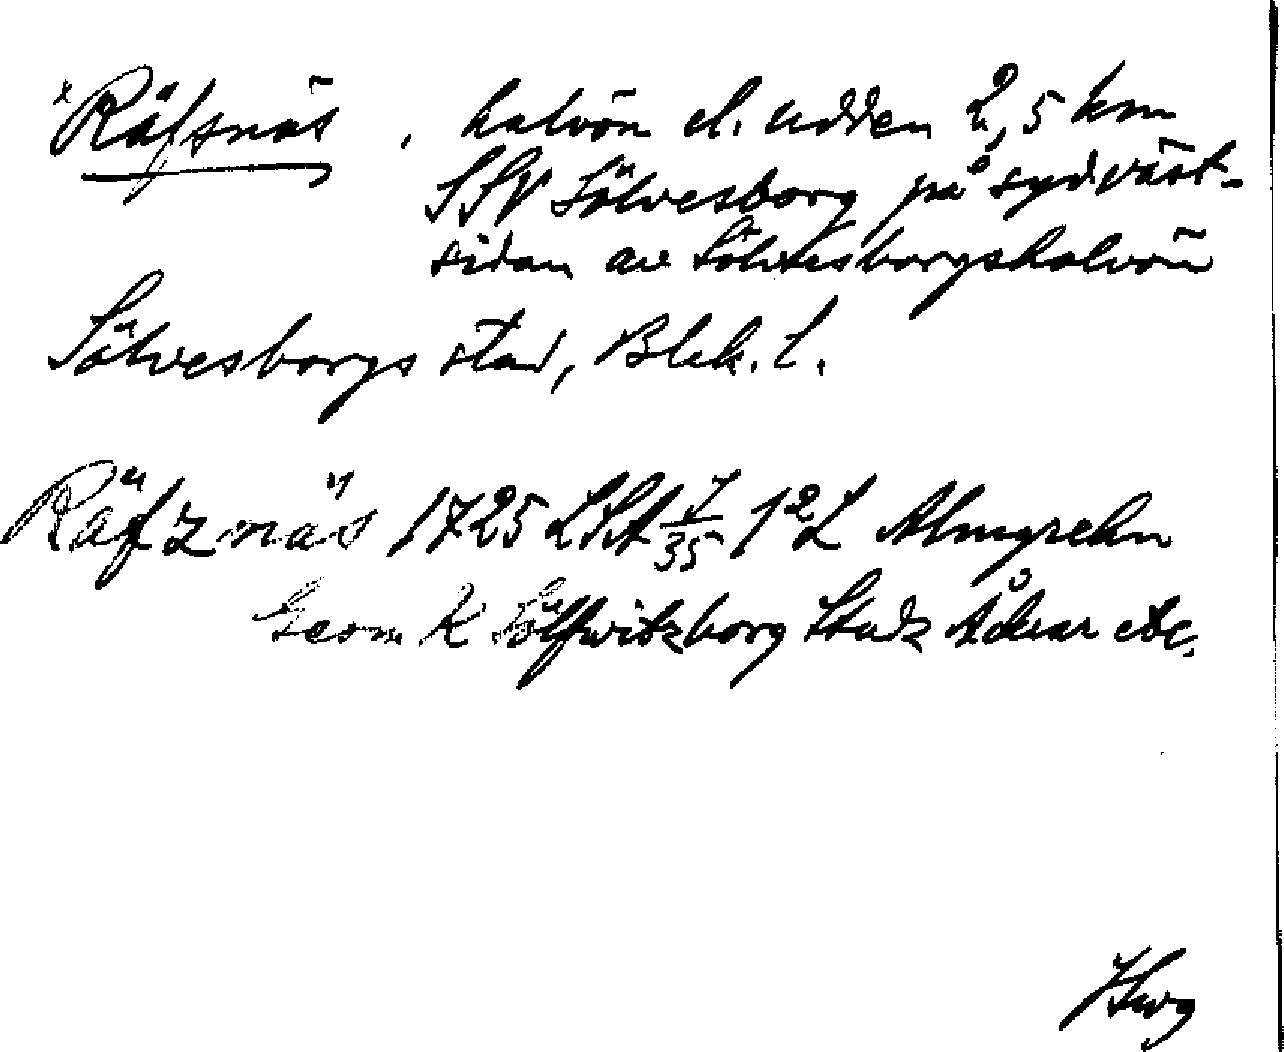 x Räfsnäs, halvön el. udden 2,5 km
SSV Sölvesborg på sydväst-
sidan av Sölvesborgshalvön
Sölvesborgs stad, Blek. l.
Räfznäs 1725 LSA 7/35 1°2 Almgrehn
Geom K Sölfwitzborg Stadz Åkrar etc.